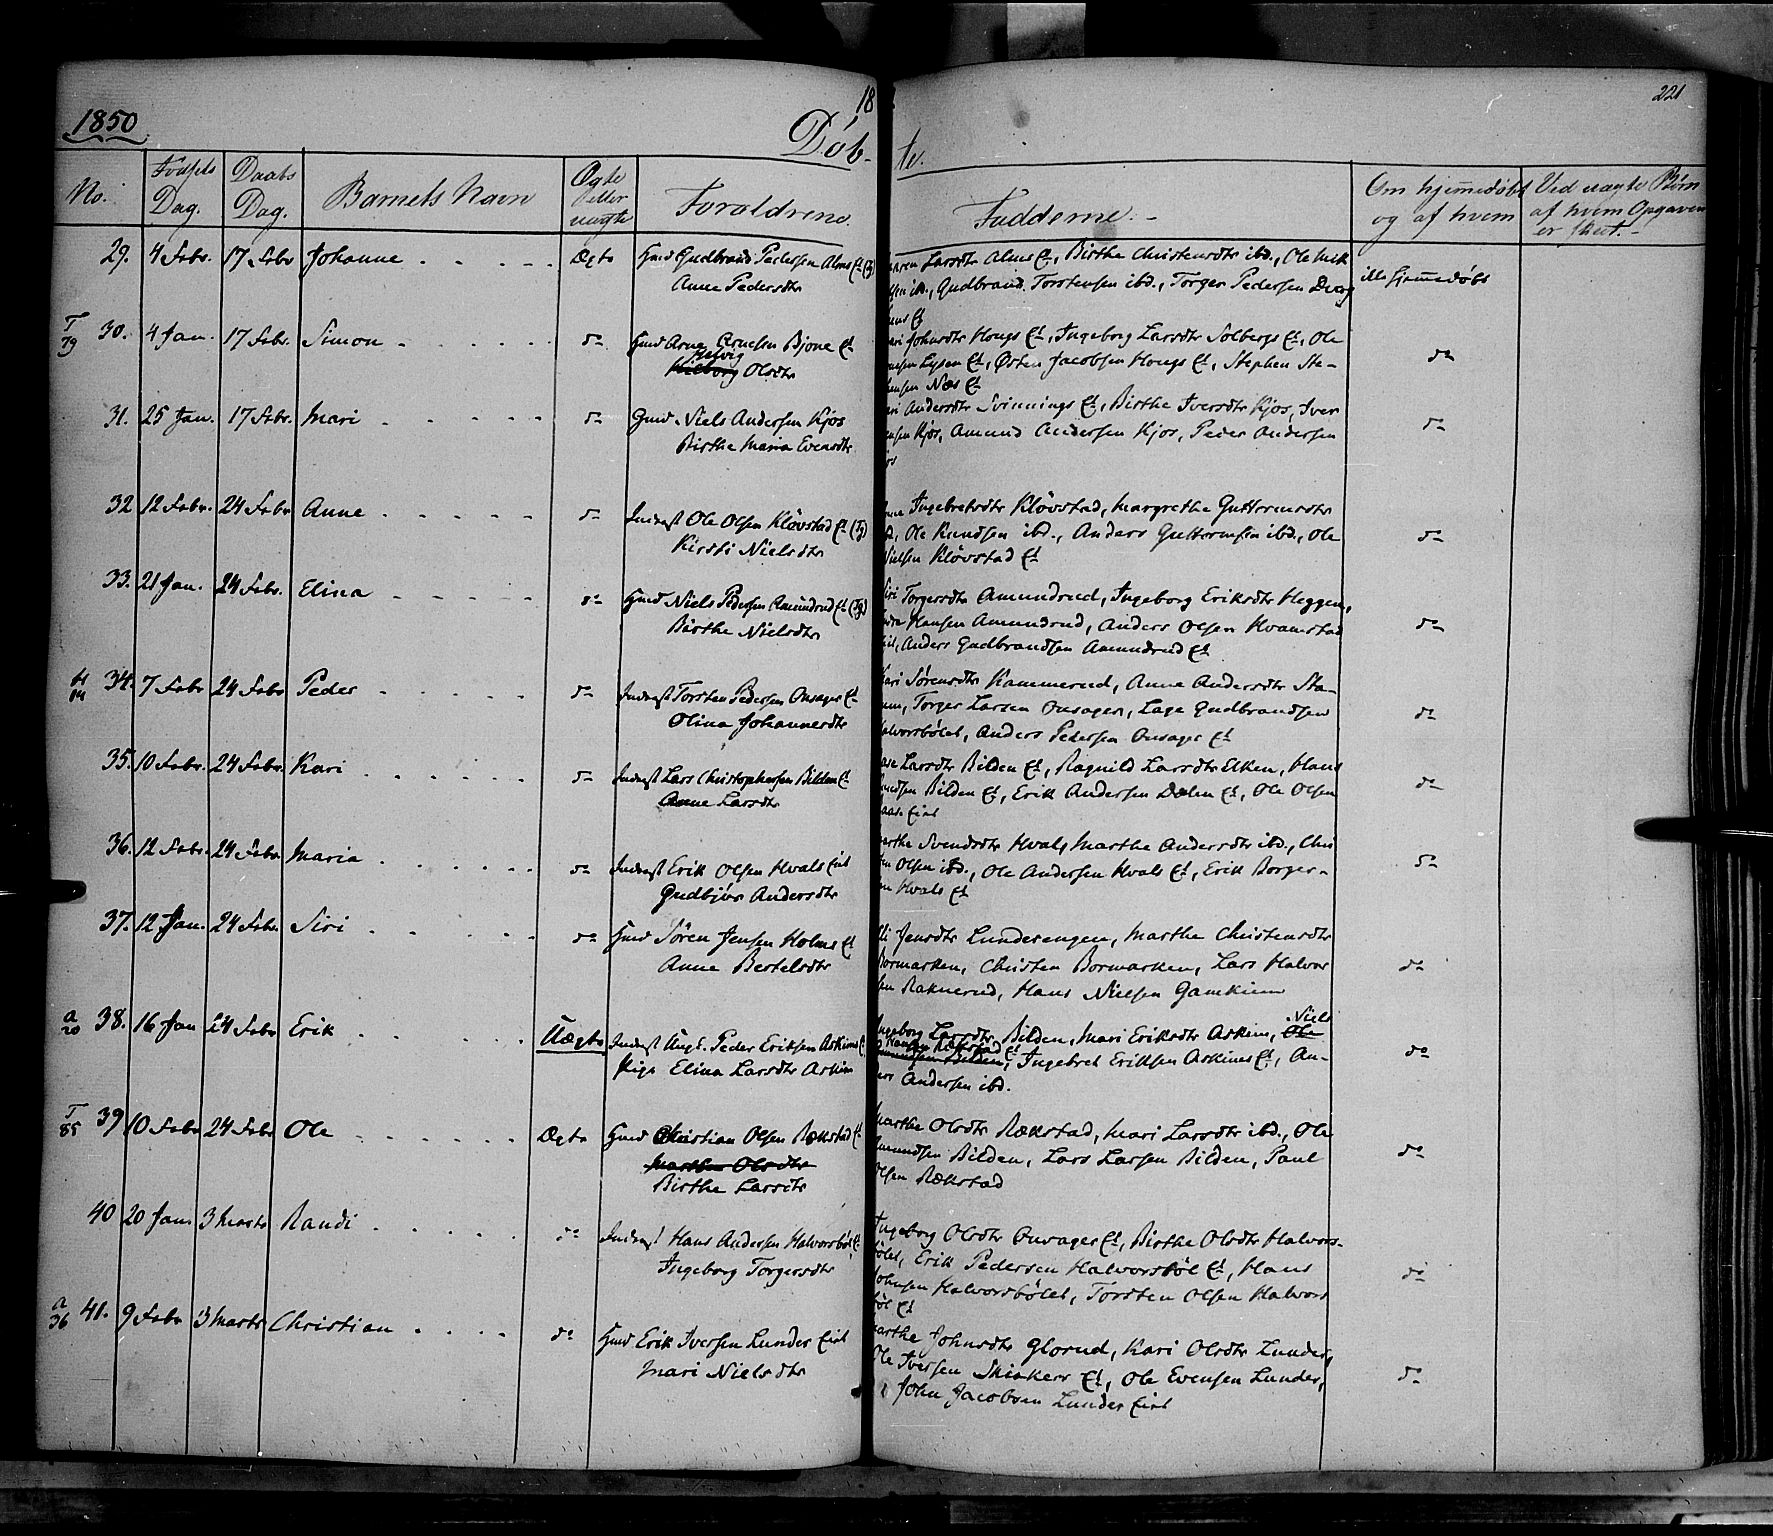 1850
18
221
Døb-
te.
No.
Fødsels Dag.
Daabs Dag.
Barnets Navn
Ægte eller uægte
Forældrene.
Fadderne. -
Om hjemmedøbt og af hvem
Ved uægte Børn af hvem Opgaven er skeet. -
29. 4 Febr. 17 Febr Johanne Ægte Gmd Gudbrand Pedersen Alms Et (Tj)
Anne Pedersdtr
Larsdtr Alms Et, Birthe Christensdtr ibd., Ole Mik
ibd., Gudbrand Torstensen ibd., Torger Pedersen
Et
ikke hjemmedøbt
T 79 30. 4 Jan. 17 Febr. Simon do Gmd Arne Arnesen Bjone Et
Helvig
Olsdtr
Johnsdtr Hougs Et, Ingeborg Larsdtr Solbergs Et, Ole
Lysen Et, Østen Jacobsen Hougs Et, Stephen Ste-
Næs Et
do
31. 25 Jan. 17 Febr. Mari do Gmd Niels Andersen Kjos
Birthe Maria Evensdtr
Andersdtr Svinnings Et, Birthe Iversdtr Kjos, Iver
Kjos, Amund Andersen Kjos, Peder Andersen
do
32 12 Febr. 24 Febr Anne do Inderst Ole Olsen Kløvstad Et (Tj)
Kirsti Nielsdtr
Ingebretsdtr Kløvstad, Margrethe Guttormsdtr
Ole Knudsen ibd., Anders Guttormsen ibd., Ole
Nielsen Kløvstad Et
do
33. 21 Jan. 24 Febr. Elina do Gmd Niels Pedersen Amundrud Et (Tj)
Birthe Nielsdtr
Siri Torgersdtr Amundrud, Ingeborg Eriksdtr Heggen,
Hansen Amundrud, Anders Olsen Kvamstad
Anders Gudbrandsen Amundrud Et
do
34. 7 Febr 24 Febr Peder do Inderst Torsten Pedersen Onsager Et
Olina Johannesdtr
Kari Sørensdtr Kammerud, Anne Andersdtr Sta-
Torger Larsen Onsager, Lage Gudbrandsen
Halvorsbølet, Anders Pedersen Onsager Et
do
35. 10 Febr. 24 Febr. Kari do Inderst Lars Christophersen Bilden Et
Anne Larsdtr
Larsdtr Bilden Et, Ragnild Larsdtr Elken, Hans
Bilden Et, Erik Andersen Dælen Et, Ole Olsen
Eiet
do
36. 12 Febr. 24 Febr. Maria do Inderst Erik Olsen Hvals Eiet
Gudbjør Andersdtr
Marthe Svendsdtr Hval, Marthe Andersdtr ibd., Chri
Olsen ibd., Ole Andersen Hvals Et, Erik Borger-
Hvals Et
do
37. 12 Jan. 24 Febr. Siri do Gmd Søren Jensen Holms Et
Anne Bertelsdtr
Jensdtr Lunderengen, Marthe Christensdtr
Bormarken, Christen Bormarken, Lars Halvor
sen Raknerud, Hans Nielsen Gamkinn
do
a 20 38. 16 Jan 24 Febr Erik Uægte Inderst Ungk. Peder Eriksen Askims Et
Pige Elina Larsdtr Askim
Niels
Ingeborg Larsdtr Bilden, Mari Eriksdtr Askim, Ole
Rækstad Et
Bilden, Ingebret Eriksen Askims Et, An-
ders Andersen ibd.
do
T 85 39 10 Febr 24 Febr Ole Ægte Gmd Christian Olsen Rækstad Et
Marthe Olsdtr
Birthe Larsdtr
Marthe Olsdtr Rækstad, Mari Larsdtr ibd., Ole
Amundsen Bilden, Lars Larsen Bilden, Paul
Olsen Rækstad
do
40 20 Jan 3 Marts Randi do Inderst Hans Andersen Halvorsbøl Et
Ingeborg Torgersdtr
Ingeborg Olsdtr Onsager Et, Birthe Olsdtr Halvors-
bølet, Erik Pedersen Halvorsbøl Et, Hans
Johnsen Halvorsbølet, Torsten Olsen Halvors
bøl Et
do
a 36 41. 9 Febr 3 Marts Christian do Gmd Erik Iversen Lunder Eiet
Mari Nielsdtr
Marthe Johnsdtr Glorud, Kari Olsdtr Lunder,
Ole Iversen Skiaker Et, Ole Evensen Lunder,
John Jacobsen Lunder Eiet
do